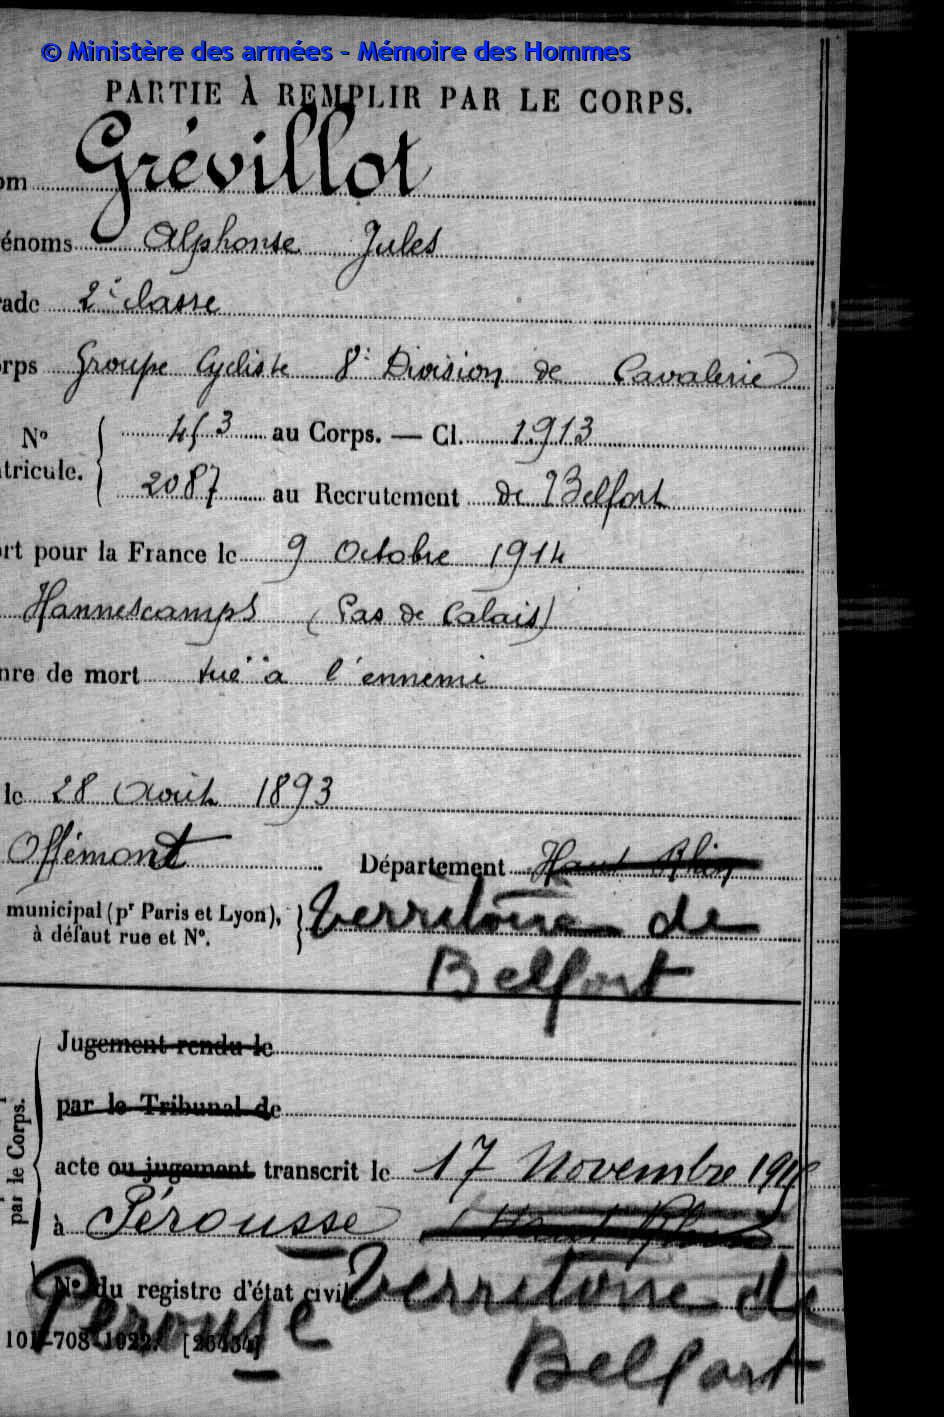 © Ministère des armées - Mémoire des Hommes
PARTIE À REMPLIR PAR LE CORPS.
om Grévillot
énoms Alphonse Jules
rade 2e classe
rps Groupe Cycliste 8e Division de Cavalerie
No
tricule.
453 au Corps. — Cl. 1913
2087 au Recrutement de Belfort
rt pour la France le 9 Octobre 1914
Hannescamps (Pas de Calais)
nre de mort tué à l'ennemi
le 28 Août 1893
Offémont Département Haut Rhin
municipal (pr Paris et Lyon),
à défaut rue et No.
Territoire de
Belfort
par le Corps.
Jugement rendu le
par le Tribunal de
acte ou jugement transcrit le 17 Novembre
à Pérousse Haut Rhin
No du registre d'état civil Territoire de
Perouse
101-708-1922. [26434]
Belfort